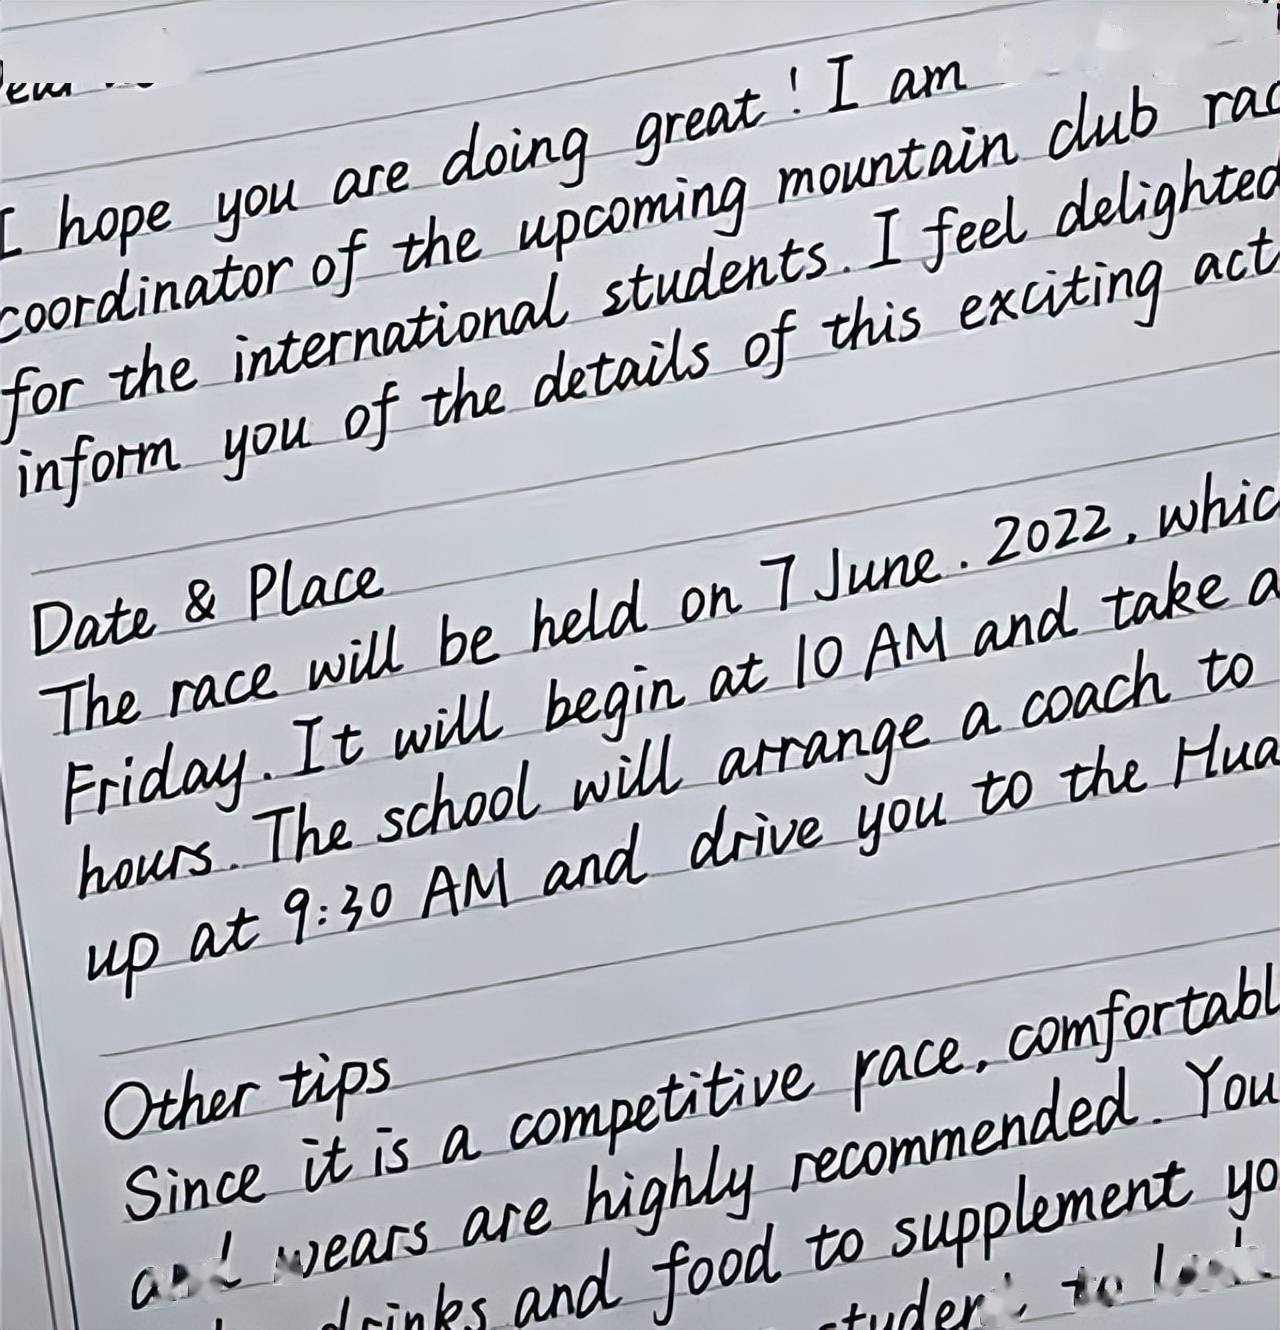 I hope you are doing great! I am
coordinator of the upcoming mountain club rac
for the international students. I feel delighted
inform you of the details of this exciting act
Date & Place
The race will be held on 7 June. 2022, whic
Friday. It will begin at 10 AM and take a
hours. The school will arrange a coach to
up at 9:30 AM and drive you to the Hua
Other tips
Since it is a competitive race, comfortabl
and wears are highly recommended. You
drinks and food to supplement yo
to